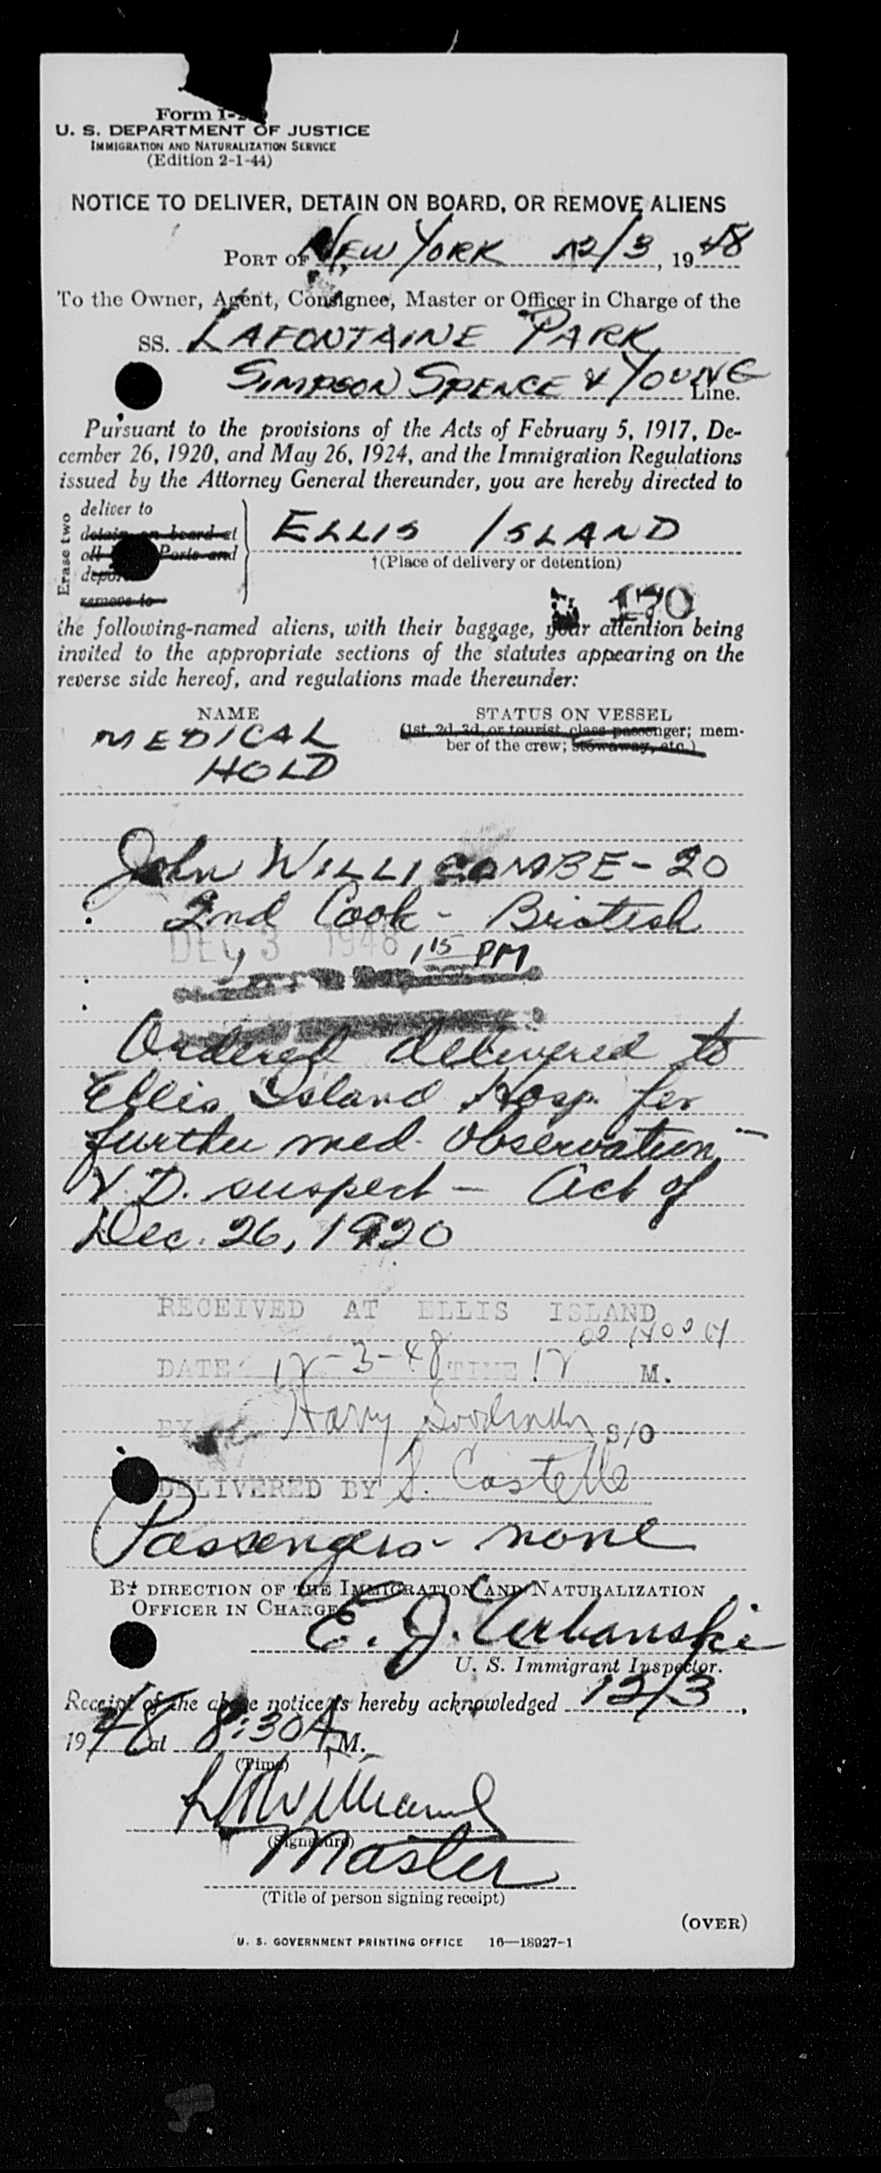 Form I-2
U. S. DEPARTMENT OF JUSTICE
IMMIGRATION AND NATURALIZATION SERVICE
(Edition 2-1-44)
NOTICE TO DELIVER, DETAIN ON BOARD, OR REMOVE ALIENS
PORT OF NEW YORK 12/3, 1948
To the Owner, Agent, Consignee, Master or Officer in Charge of the
SS. LAFONTAINE PARK
SIMPSON SPENCE & YOUNG Line.
Pursuant to the provisions of the Acts of February 5, 1917, De-
cember 26, 1920, and May 26, 1924, and the Immigration Regulations
issued by the Attorney General thereunder, you are hereby directed to
Erase two
deliver to
detain on board at
all Ports and
deport
remove to
ELLIS ISLAND
†(Place of delivery or detention)
170
the following-named aliens, with their baggage, your attention being
invited to the appropriate sections of the statutes appearing on the
reverse side hereof, and regulations made thereunder:
NAME STATUS ON VESSEL
(1st, 2d, 3d, or tourist class passenger; mem-
ber of the crew; stowaway, etc.)
MEDICAL
HOLD
John WILLICOMBE - 20
2nd Cook - British
DEC 3 1948 1 15 PM
Ordered delivered to
Ellis Island Hosp. for
further med. observation -
V. D. suspect - Act of
Dec. 26, 1920
RECEIVED AT ELLIS ISLAND
DATE 12-3-48 TIME 12 M.
BY Harry Goodman S/O
DELIVERED BY S. Costello
Passengers - none
BY DIRECTION OF THE IMMIGRATION AND NATURALIZATION
OFFICER IN CHARGE
E. J. Urbanski
U. S. Immigrant Inspector.
Receipt of the above notice is hereby acknowledged 12/3,
1948 at 8:30 A M.
(Time)
Williams
(Signature)
Master
(Title of person signing receipt)
(OVER)
U. S. GOVERNMENT PRINTING OFFICE 16—18927-1